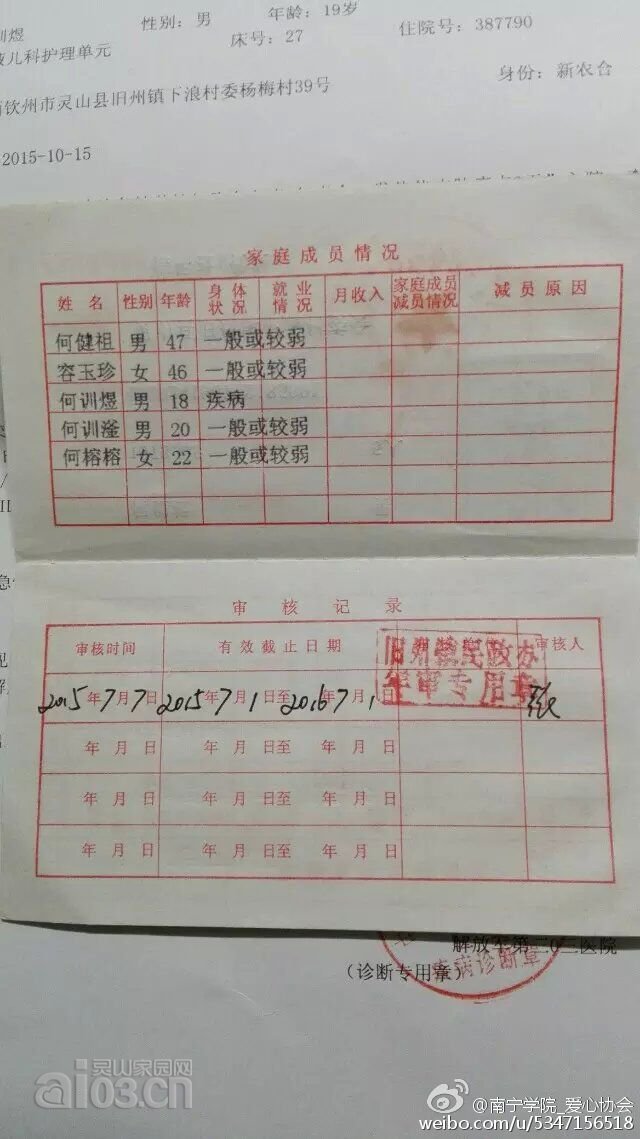 训煜 性别：男 年龄：19岁
儿科护理单元 床号：27 住院号：387790
钦州市灵山县旧州镇下浪村委杨梅村39号 身份：新农合
2015-10-15
家庭成员情况
姓 名 性别 年龄 身体状况 就业情况 月收入 家庭成员减员情况 减员原因
何健祖 男 47 一般或较弱
容玉珍 女 46 一般或较弱
何训煜 男 18 疾病
何训滏 男 20 一般或较弱
何榕榕 女 22 一般或较弱
审核记录
审核时间 有效截止日期 审核人
旧州镇民政办
年审专用章
2015年7月7日 2015年7月1日至 2016年7月1日 张
年 月 日 年 月 日至 年 月 日
年 月 日 年 月 日至 年 月 日
年 月 日 年 月 日至 年 月 日
解放军第三0三医院
（诊断专用章）
疾病诊断章
灵山家园网
aio3.cn
@南宁学院_爱心协会
weibo.com/u/5347156518